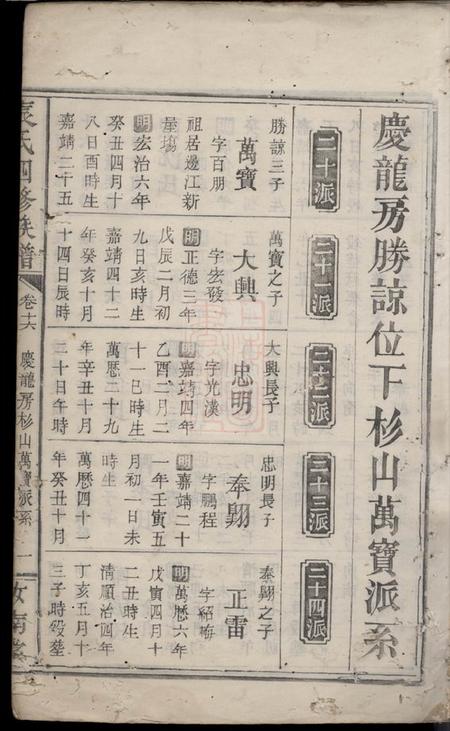 慶龍房勝諒位下杉山萬寶派系
二十派
二十一派
二十二派
二十三派
二十四派
勝諒三子
萬寶
字百朋
祖居邊江新
屋塲
明宏治六年
癸丑四月十
八日酉時生
嘉靖二十五
萬寶之子
大興
字宏發
明正德三年
戊辰二月初
九日亥時生
嘉靖四十二
年癸亥十月
十四日辰時
大興長子
忠明
字光漢
明嘉靖四年
乙酉二月二
十一巳時生
萬曆二十九
年辛丑十月
二十日午時
忠明長子
奉翾
字鵬程
明嘉靖二十
一年壬寅五
月初一日未
時生
萬曆四十一
年癸丑十月
奉翾之子
正雷
字紹梅
明萬曆六年
戊寅四月十
二丑時生
清順治四年
丁亥五月十
三子時歿塟
袁氏四修族譜
卷十六
慶龍房杉山萬寶派系
一
汝南堂